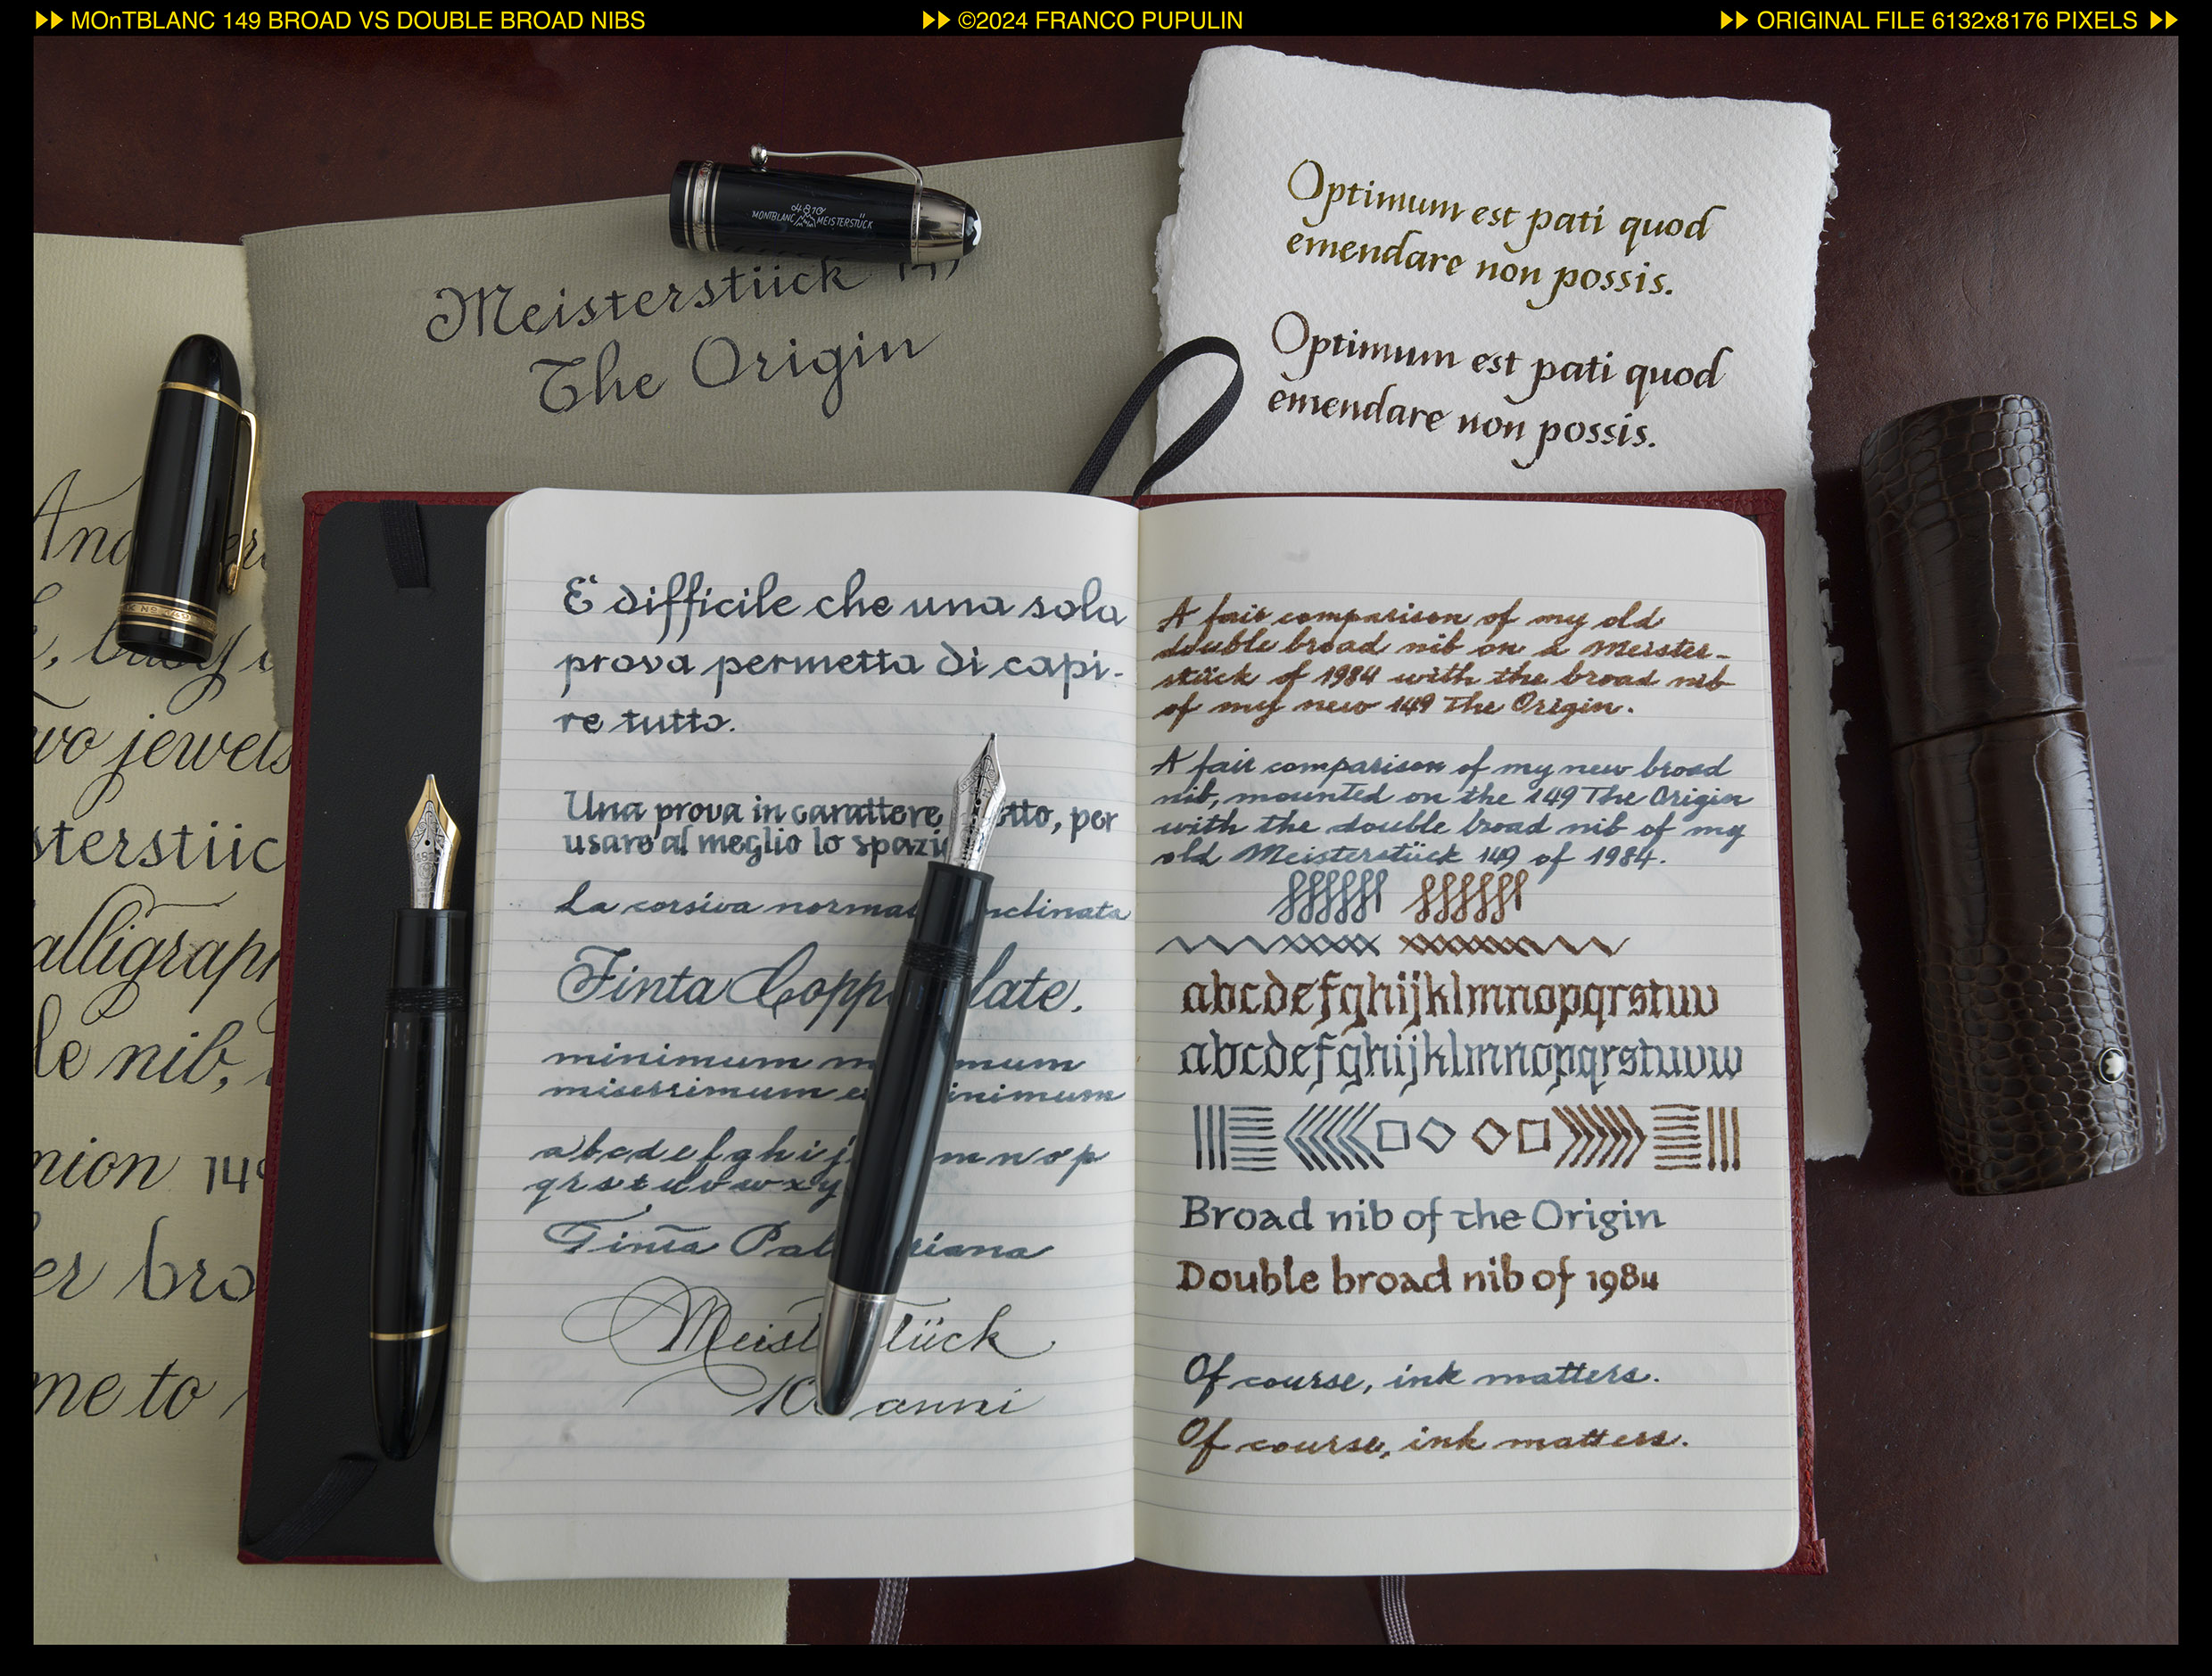 MOnTBLANC 149 BROAD VS DOUBLE BROAD NIBS
©2024 FRANCO PUPULIN
ORIGINAL FILE 6132x8176 PIXELS
4810
MONTBLANC MEISTERSTÜCK
Meisterstück
The Origin
Optimum est pati quod
emendare non possis.
Optimum est pati quod
emendare non possis.
jewels
nib,
149
bro
me to
E' difficile che una sola
prova permetta di capi-
re tutto.
Una prova in carattere
per
usare al meglio lo
La corsiva
Finta
minimum
a b c d e f g h i j m n o p
q r s t u v w x y
Finta
anni
A fair comparison of my old
double broad nib on a Meister-
stück of 1984 with the broad nib
of my new 149 The Origin.
A fair comparison of my new broad
nib, mounted on the 149 The Origin
with the double broad nib of my
old Meisterstück 149 of 1984.
abcdefghijklmnopqrstuv
abcdefghijklmnopqrstuvw
Broad nib of the Origin
Double broad nib of 1984
Of course, ink matters.
Of course, ink matters.